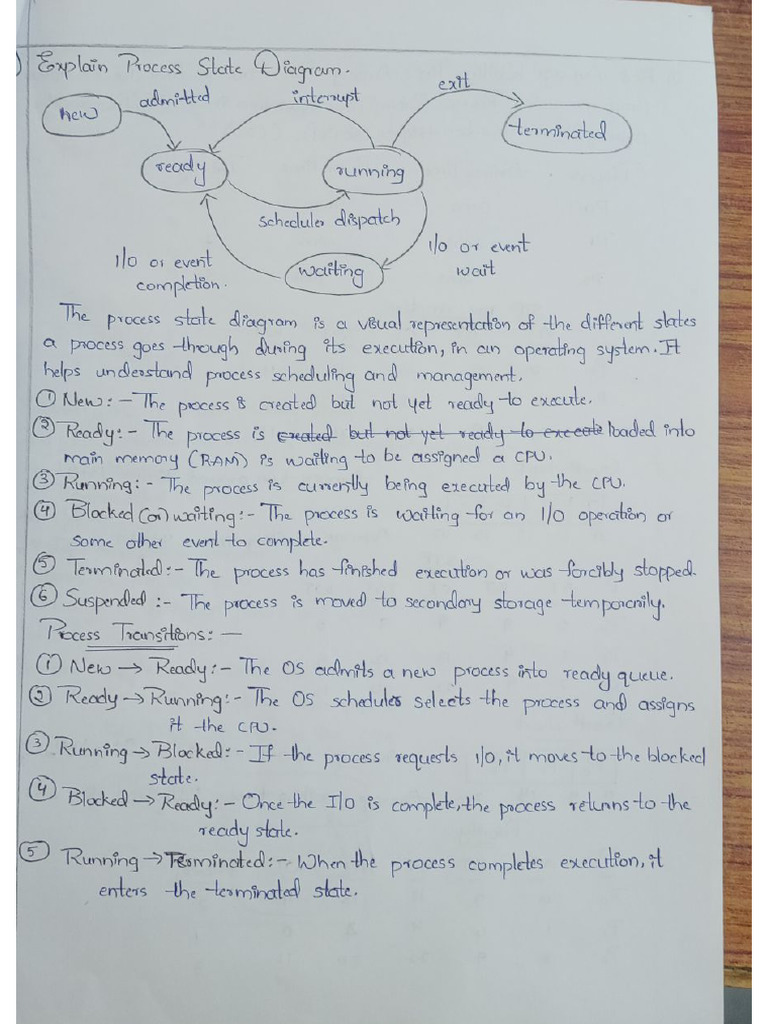 Explain Process State Diagram.
new
admitted
interrupt
exit
terminated
ready
running
scheduler dispatch
I/O or event
completion.
waiting
I/O or event
wait
The process state diagram is a visual representation of the different states
a process goes through during its execution, in an operating system. It
helps understand process scheduling and management.
① New:- The process is created but not yet ready to execute.
② Ready:- The process is created but not yet ready to execute loaded into
main memory (RAM) is waiting to be assigned a CPU.
③ Running:- The process is currently being executed by the CPU.
④ Blocked (or) waiting:- The process is waiting for an I/O operation or
some other event to complete.
⑤ Terminated:- The process has finished execution or was forcibly stopped.
⑥ Suspended:- The process is moved to secondary storage temporarily.
Process Transitions:-
① New → Ready:- The OS admits a new process into ready queue.
② Ready → Running:- The OS scheduler selects the process and assigns
it the CPU.
③ Running → Blocked:- If the process requests I/O, it moves to the blocked
state.
④ Blocked → Ready:- Once the I/O is complete, the process returns to the
ready state.
⑤ Running → Terminated:- When the process completes execution, it
enters the terminated state.